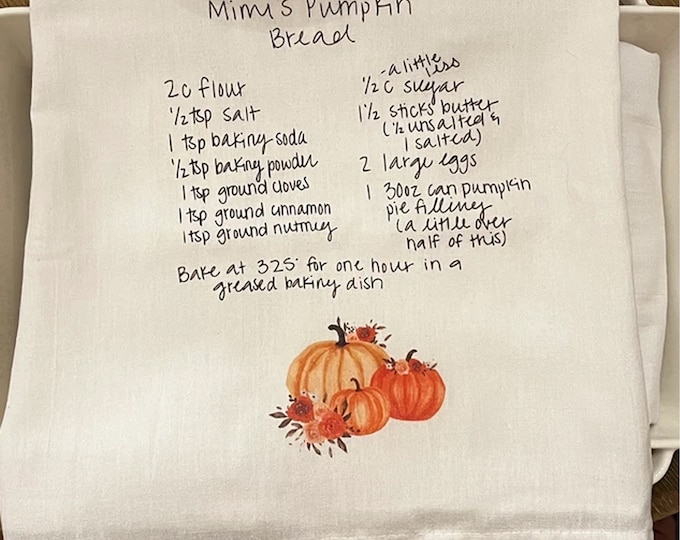 Mimi's Pumpkin
Bread
2c flour
1/2 tsp salt
1 tsp baking soda
1/2 tsp baking powder
1 tsp ground cloves
1 tsp ground cinnamon
1 tsp ground nutmeg
- a little less
1/2 c sugar
1 1/2 sticks butter
(1/2 unsalted &
1 salted)
2 large eggs
1 30oz can pumpkin
pie filling
(a little over
half of this)
Bake at 325° for one hour in a
greased baking dish